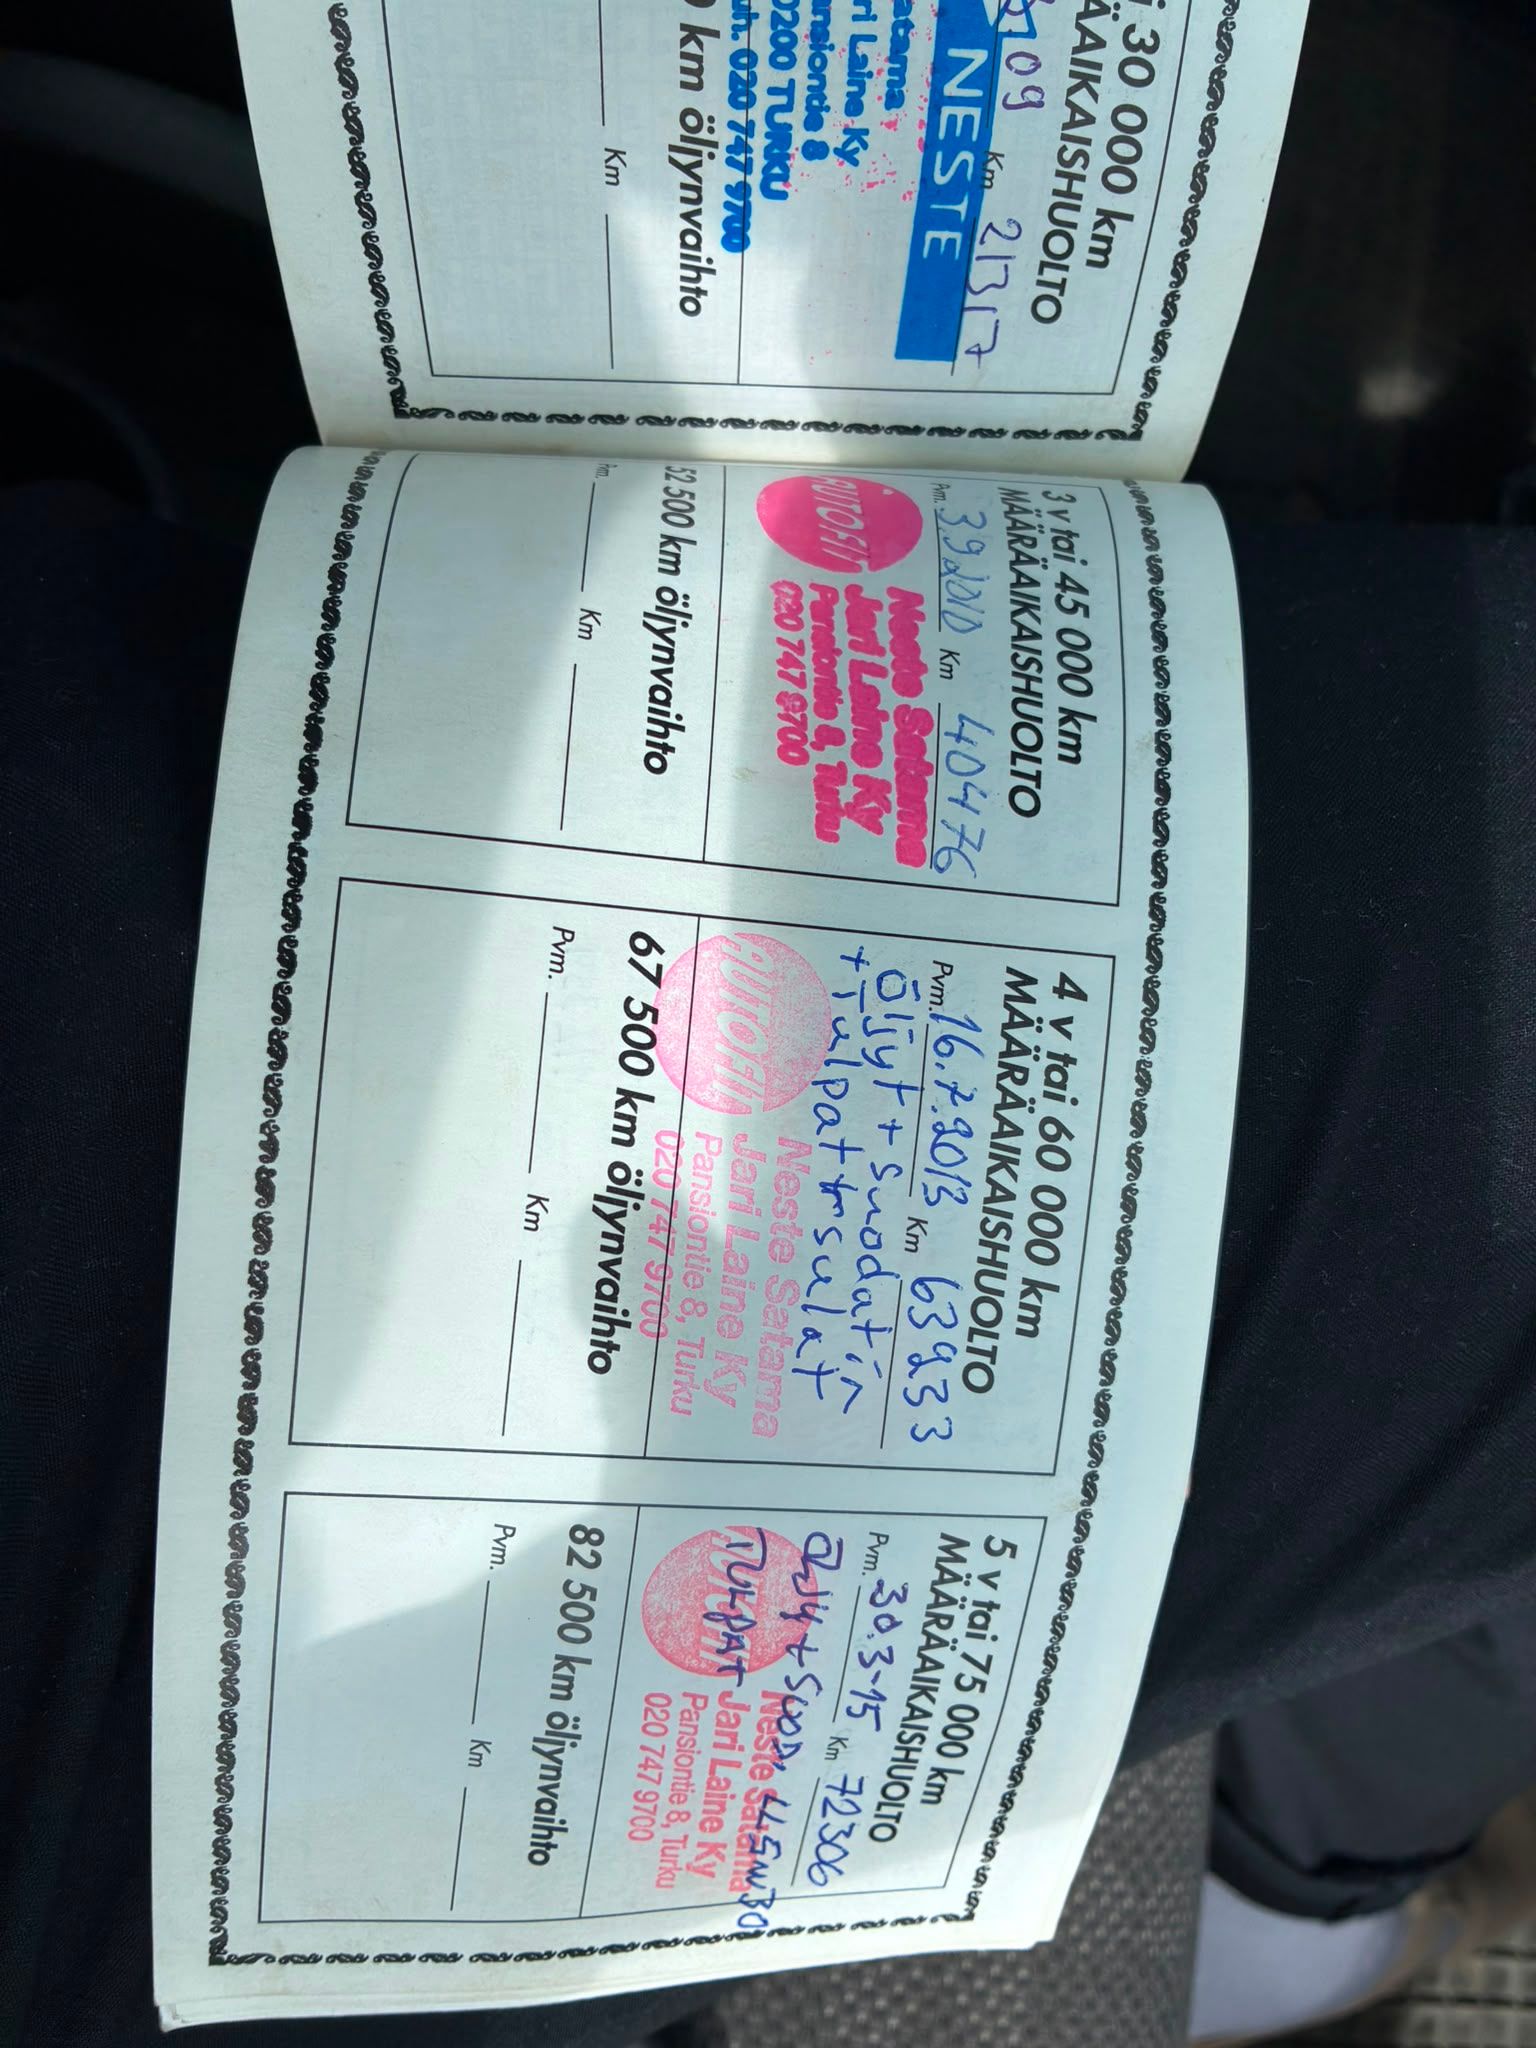 i 30 000 km
ÄÄAIKAISHUOLTO
09 Km 21317
NESTE
atama
ri Laine Ky
ansiontie 8
0200 TURKU
uh. 020 747 9700
0 km öljynvaihto
Km
3 v tai 45 000 km
MÄÄRÄAIKAISHUOLTO
Pvm. 3.9.2010 Km 40476
AUTOFIT
Neste Satama
Jari Laine Ky
Pansiontie 8, Turku
020 747 9700
52 500 km öljynvaihto
Pvm. Km
4 v tai 60 000 km
MÄÄRÄAIKAISHUOLTO
Pvm. 16.7.2013 Km 63933
Öljyt + suodatin
+ Tulpat
AUTOFIT
Neste Satama
Jari Laine Ky
Pansiontie 8, Turku
020 747 9700
67 500 km öljynvaihto
Pvm. Km
5 v tai 75 000 km
MÄÄRÄAIKAISHUOLTO
Pvm. 30.3-15 Km 72306
ÖLJY + SUOD. 5W30
TULPAT
AUTOFIT
Neste Satama
Jari Laine Ky
Pansiontie 8, Turku
020 747 9700
82 500 km öljynvaihto
Pvm. Km